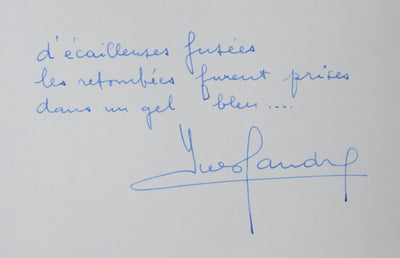 d'écailleuses fusées
les retombées furent prises
dans un gel bleu....
Yves Gandon